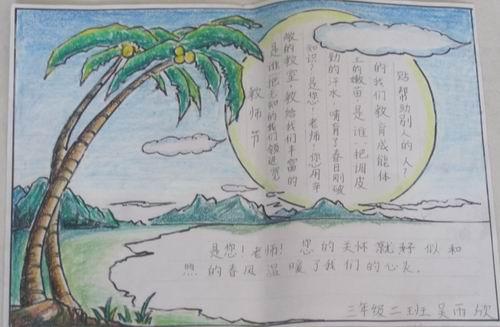 教师节
是谁把无知的我们领进宽
敞的教室,教给我们丰富的
知识?是您!老师!您用辛
勤的汗水,哺育了春日刚破
土的嫩苗;是谁,把调皮
的我们教育成能体
贴帮助别人的人?
是您!老师! 您的关怀就好似和
煦的春风温暖了我们的心灵.
三年级二班吴雨欣